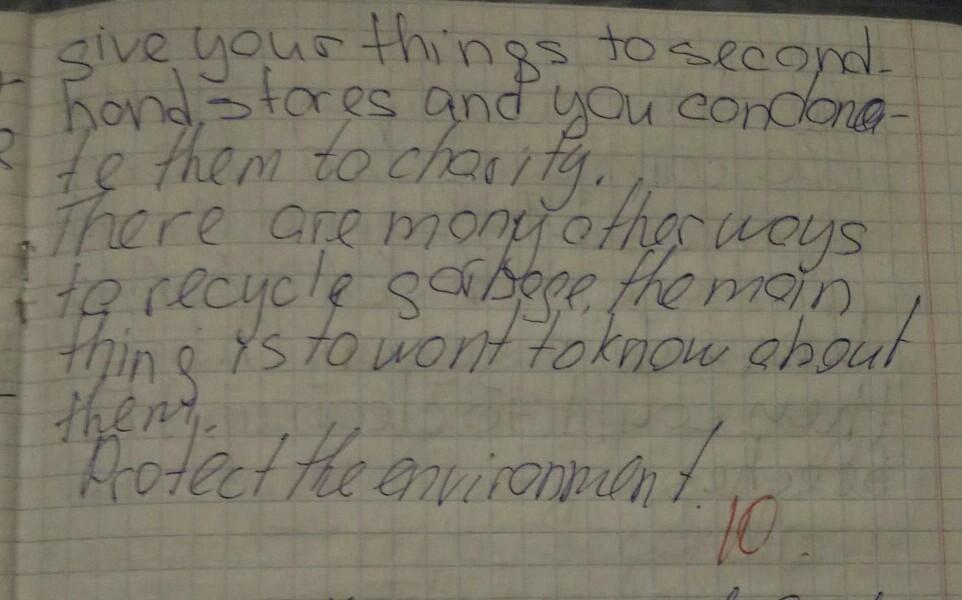 give your things to second-
hand stores and you can dona-
te them to charity.
There are many other ways
to recycle garbage, the main
thing is to want to know about
them.
Protect the environment.
10.